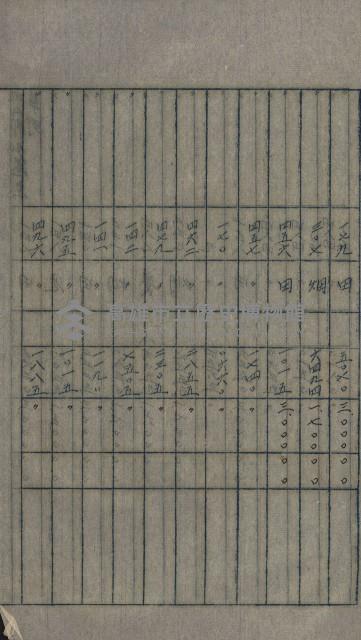 一七九 田 五〇九〇 三〇〇〇〇〇
二〇七 畑 六四九四 一七〇〇〇〇
四五六 田 一〇一五 三〇〇〇〇〇
〃 四五七 〃 一七四〇 〃
〃 一七〇 〃 〃
〃 四六二 〃 二八五五 〃
〃 四七九 〃 〃
〃 一四二 〃 七五〇五 〃
〃 一四一 〃 一一九〇 〃
〃 四九五 〃 一〇一五 〃
〃 四九六 〃 一八八五 〃
高雄市立歷史博物館